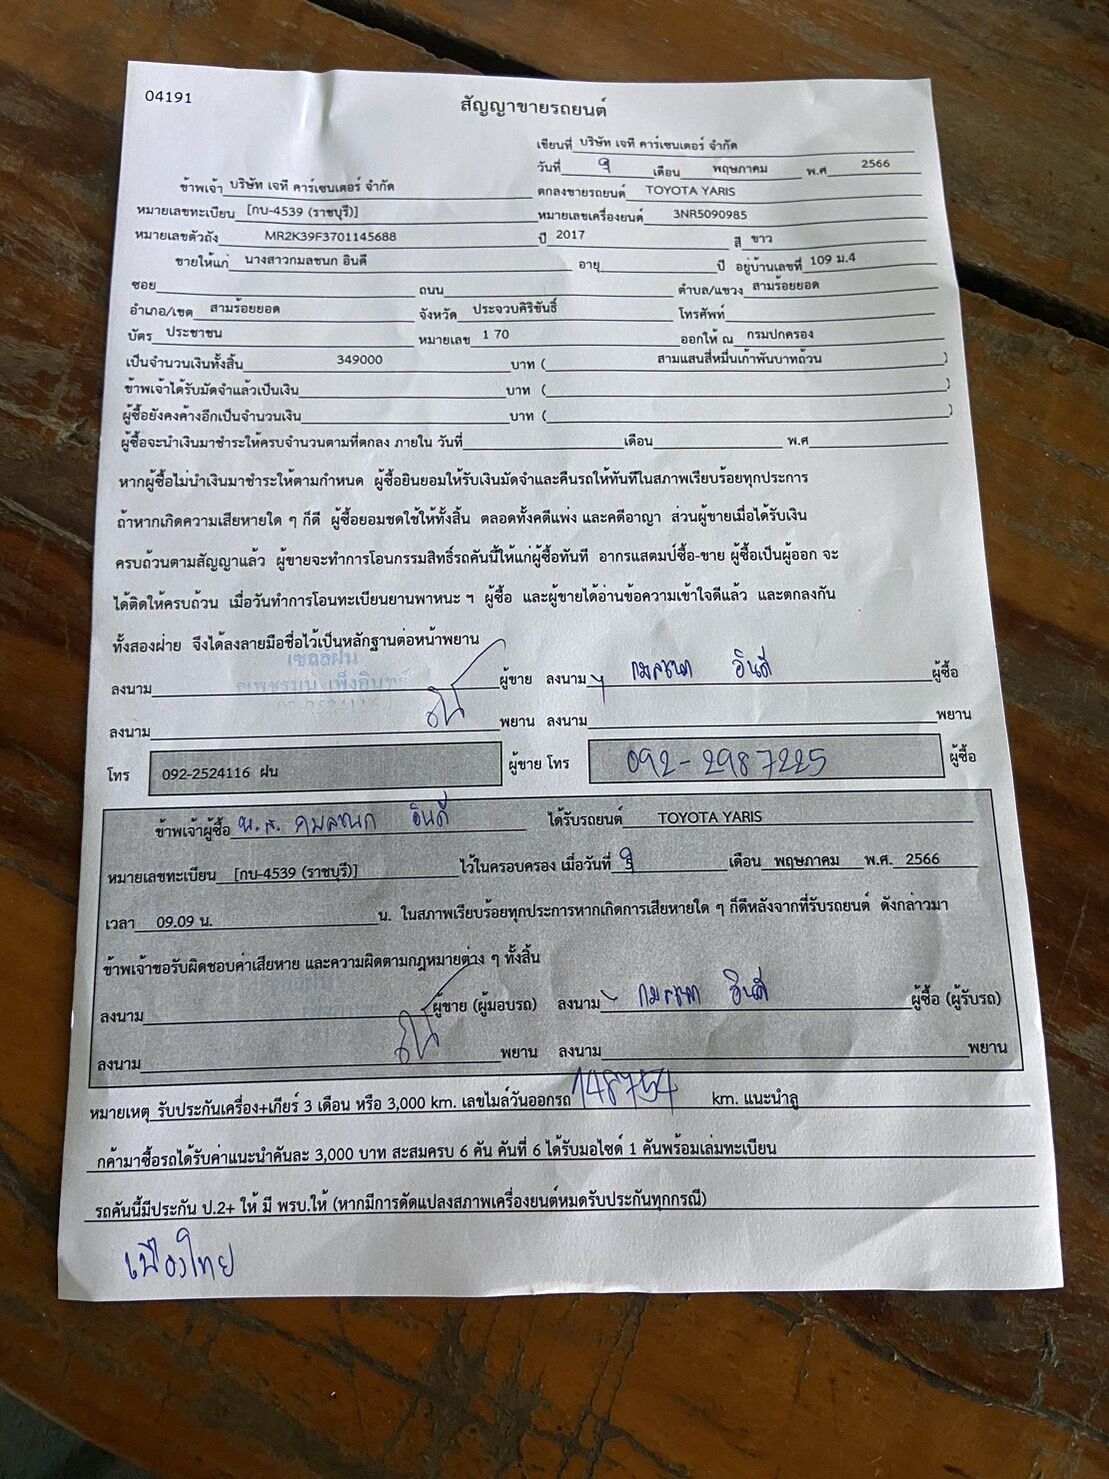 04191
สัญญาขายรถยนต์
เขียนที่ บริษัท เจที คาร์เซนเตอร์ จำกัด
วันที่ 9 เดือน พฤษภาคม พ.ศ 2566
ข้าพเจ้า บริษัท เจที คาร์เซนเตอร์ จำกัด ตกลงขายรถยนต์ TOYOTA YARIS
หมายเลขทะเบียน [กบ-4539 (ราชบุรี)] หมายเลขเครื่องยนต์ 3NR5090985
หมายเลขตัวถัง MR2K39F3701145688 ปี 2017 สี ขาว
ขายให้แก่ นางสาวกมลชนก อินดี อายุ ปี อยู่บ้านเลขที่ 109 ม.4
ซอย ถนน ตำบล/แขวง สามร้อยยอด
อำเภอ/เขต สามร้อยยอด จังหวัด ประจวบคิริขันธ์ โทรศัพท์
บัตร ประชาชน หมายเลข 1 70 ออกให้ ณ กรมปกครอง
เป็นจำนวนเงินทั้งสิ้น 349000 บาท ( สามแสนสี่หมื่นเก้าพันบาทถ้วน )
ข้าพเจ้าได้รับมัดจำแล้วเป็นเงิน บาท ( )
ผู้ซื้อยังคงค้างอีกเป็นจำนวนเงิน บาท ( )
ผู้ซื้อจะนำเงินมาชำระให้ครบจำนวนตามที่ตกลง ภายใน วันที่ เดือน พ.ศ
หากผู้ซื้อไม่นำเงินมาชำระให้ตามกำหนด ผู้ซื้อยินยอมให้รับเงินมัดจำและคืนรถให้ทันทีในสภาพเรียบร้อยทุกประการ
ถ้าหากเกิดความเสียหายใด ๆ ก็ดี ผู้ซื้อยอมชดใช้ให้ทั้งสิ้น ตลอดทั้งคดีแพ่ง และคดีอาญา ส่วนผู้ขายเมื่อได้รับเงิน
ครบถ้วนตามสัญญาแล้ว ผู้ขายจะทำการโอนกรรมสิทธิ์รถคันนี้ให้แก่ผู้ซื้อทันที อากรแสตมป์ซื้อ-ขาย ผู้ซื้อเป็นผู้ออก จะ
ได้ติดให้ครบถ้วน เมื่อวันทำการโอนทะเบียนยานพาหนะ ฯ ผู้ซื้อ และผู้ขายได้อ่านข้อความเข้าใจดีแล้ว และตกลงกัน
ทั้งสองฝ่าย จึงได้ลงลายมือชื่อไว้เป็นหลักฐานต่อหน้าพยาน
เซลล์ฝน
ลงนาม ผู้ขาย ลงนาม กมลชนก อินดี ผู้ซื้อ
ลงนาม พยาน ลงนาม พยาน
โทร 092-2524116 ฝน ผู้ขาย โทร 092-2987225 ผู้ซื้อ
ข้าพเจ้าผู้ซื้อ น.ส. กมลชนก อินดี ได้รับรถยนต์ TOYOTA YARIS
หมายเลขทะเบียน [กบ-4539 (ราชบุรี)] ไว้ในครอบครอง เมื่อวันที่ 9 เดือน พฤษภาคม พ.ศ. 2566
เวลา 09.09 น. น. ในสภาพเรียบร้อยทุกประการหากเกิดการเสียหายใด ๆ ก็ดีหลังจากที่รับรถยนต์ ดังกล่าวมา
ข้าพเจ้าขอรับผิดชอบค่าเสียหาย และความผิดตามกฎหมายต่าง ๆ ทั้งสิ้น
ลงนาม ผู้ขาย (ผู้มอบรถ) ลงนาม กมลชนก อินดี ผู้ซื้อ (ผู้รับรถ)
ลงนาม พยาน ลงนาม พยาน
หมายเหตุ รับประกันเครื่อง+เกียร์ 3 เดือน หรือ 3,000 km. เลขไมล์วันออกรถ 148754 km. แนะนำลู
กค้ามาซื้อรถได้รับค่าแนะนำคันละ 3,000 บาท สะสมครบ 6 คัน คันที่ 6 ได้รับมอไซด์ 1 คันพร้อมเล่มทะเบียน
รถคันนี้มีประกัน ป.2+ ให้ มี พรบ.ให้ (หากมีการดัดแปลงสภาพเครื่องยนต์หมดรับประกันทุกกรณี)
เมืองไทย